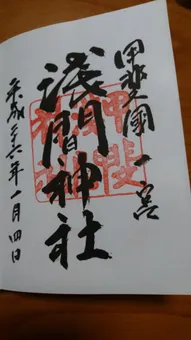 甲斐國一宮
淺間神社
平成二十六年一月四日